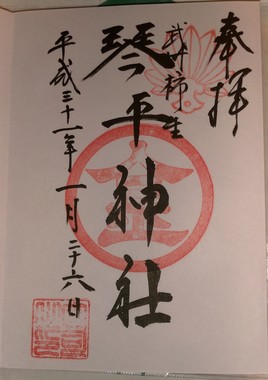 奉拝
武州柿生
琴平神社
金
平成三十一年一月二十六日